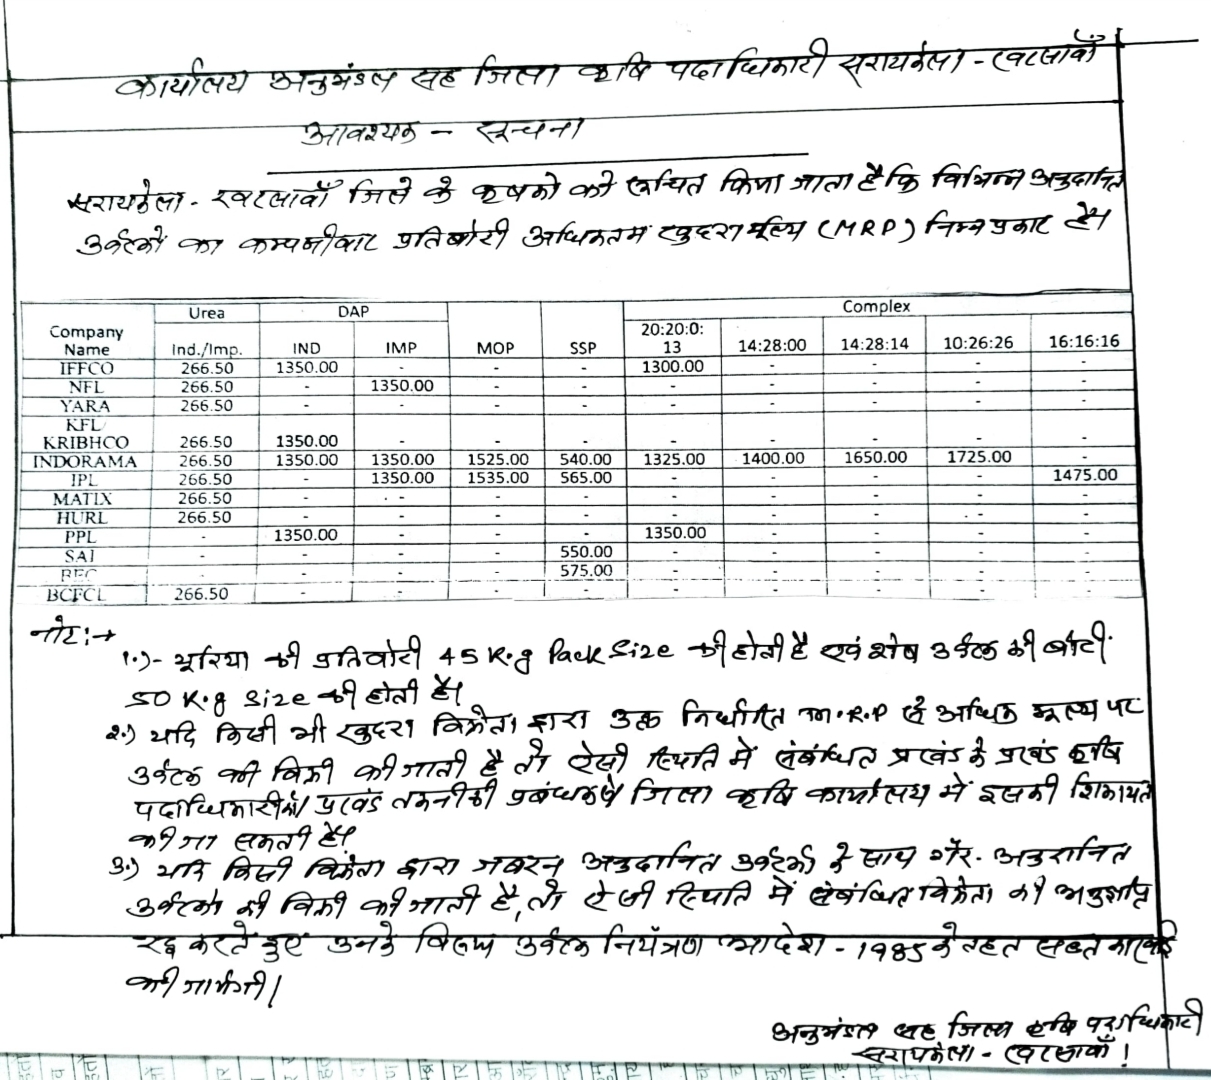 कार्यालय अनुमंडल सह जिला कृषि पदाधिकारी सरायकेला - खरसावाँ
आवश्यक - सूचना
सरायकेला - खरसावाँ जिले के कृषको को सूचित किया जाता है कि विभिन्न अनुदानित
उर्वरकों का कम्पनीवार प्रतिबोरी अधिकतम खुदरा मूल्य (MRP) निम्न प्रकार है।
Company Name | Urea | DAP | MOP | SSP | Complex
Ind./Imp. | IND | IMP | 20:20:0:13 | 14:28:00 | 14:28:14 | 10:26:26 | 16:16:16
IFFCO 266.50 1350.00 - - - 1300.00 - - - -
NFL 266.50 - 1350.00 - - - - - - -
YARA 266.50 - - - - - - - - -
KFL
KRIBHCO 266.50 1350.00 - - - - - - - -
INDORAMA 266.50 1350.00 1350.00 1525.00 540.00 1325.00 1400.00 1650.00 1725.00 -
IPL 266.50 - 1350.00 1535.00 565.00 - - - - 1475.00
MATIX 266.50 - - - - - - - - -
HURL 266.50 - - - - - - - - -
PPL - 1350.00 - - - 1350.00 - - - -
SAI - - - - 550.00 - - - - -
- - - - 575.00 - - - - -
BCFCL 266.50 - - - - - - - - -
नोट :→
1.)- यूरिया की प्रतिबोरी 45 K.g Pack Size की होती है एवं शेष उर्वरक की बोरी
50 K.g Size की होती है।
2.) यदि किसी भी खुदरा विक्रेता द्वारा उक्त निर्धारित M.R.P से अधिक मूल्य पर
उर्वरक की बिक्री की जाती है तो ऐसी स्थिति में संबंधित प्रखंड के प्रखंड कृषि
पदाधिकारी प्रखंड तकनीकी जिला कृषि कार्यालय में इसकी शिकायत
की जा सकती है।
3.) यदि किसी विक्रेता द्वारा जबरन अनुदानित उर्वरकों के साथ गैर-अनुदानित
उर्वरको की बिक्री की जाती है, तो ऐसी स्थिति में संबंधित विक्रेता की अनुज्ञप्ति
रद्द करते हुए उनके विरुद्ध उर्वरक नियंत्रण आदेश - 1985 के तहत सख्त कारवाई
की जायेगी।
अनुमंडल सह जिला कृषि पदाधिकारी
सरायकेला - खरसावाँ।